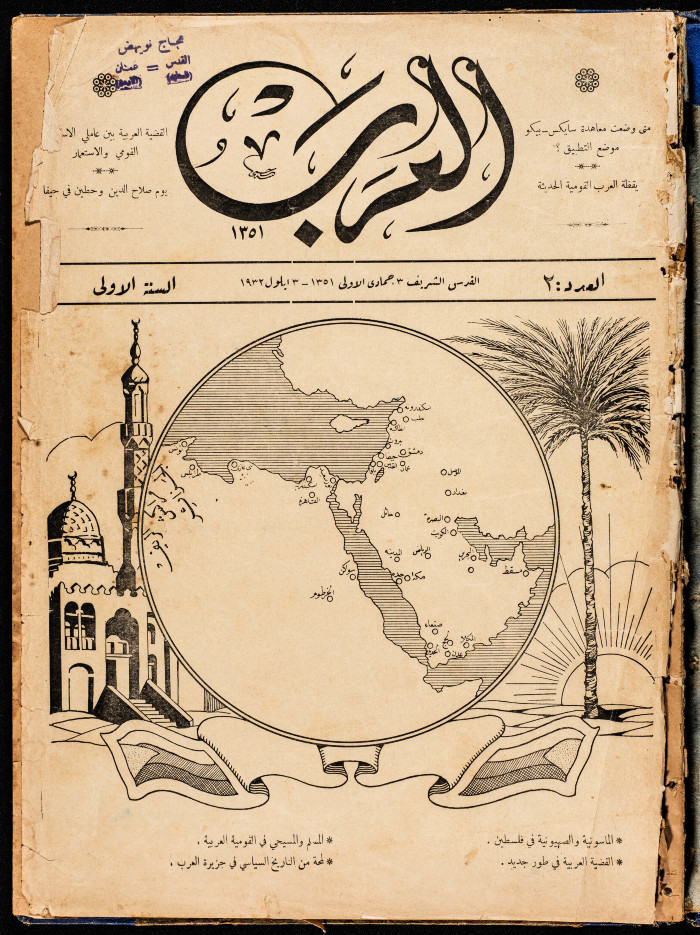 عجاج نويهض
القدس = عمان
متى وضعت معاهدة سايكس-بيكو
موضع التطبيق ؟
يقظة العرب القومية الحديثة
العرب
١٣٥١
القضية العربية بين عاملي
القومي والاستعمار
يوم صلاح الدين وحطين في حيفا
العدد : ٢
القدس الشريف ٣ جمادى الاولى ١٣٥١ - ٣ ايلول ١٩٣٢
السنة الاولى
سكندرونه
حلب
بيروت
دمشق
حيفا
القدس
عمان
تونس
طرابلس
بني غازي
القاهرة
الموصل
بغداد
البصرة
الكويت
حائل
المدينه
الرياض
البحرين
مسقط
مكة
جده
سواكن
الخرطوم
صنعاء
المكلا
عدن
* الماسونية والصهيونية في فلسطين .
* القضية العربية في طور جديد .
* المسلم والمسيحي في القومية العربية .
* لمحة من التاريخ السياسي في جزيرة العرب .